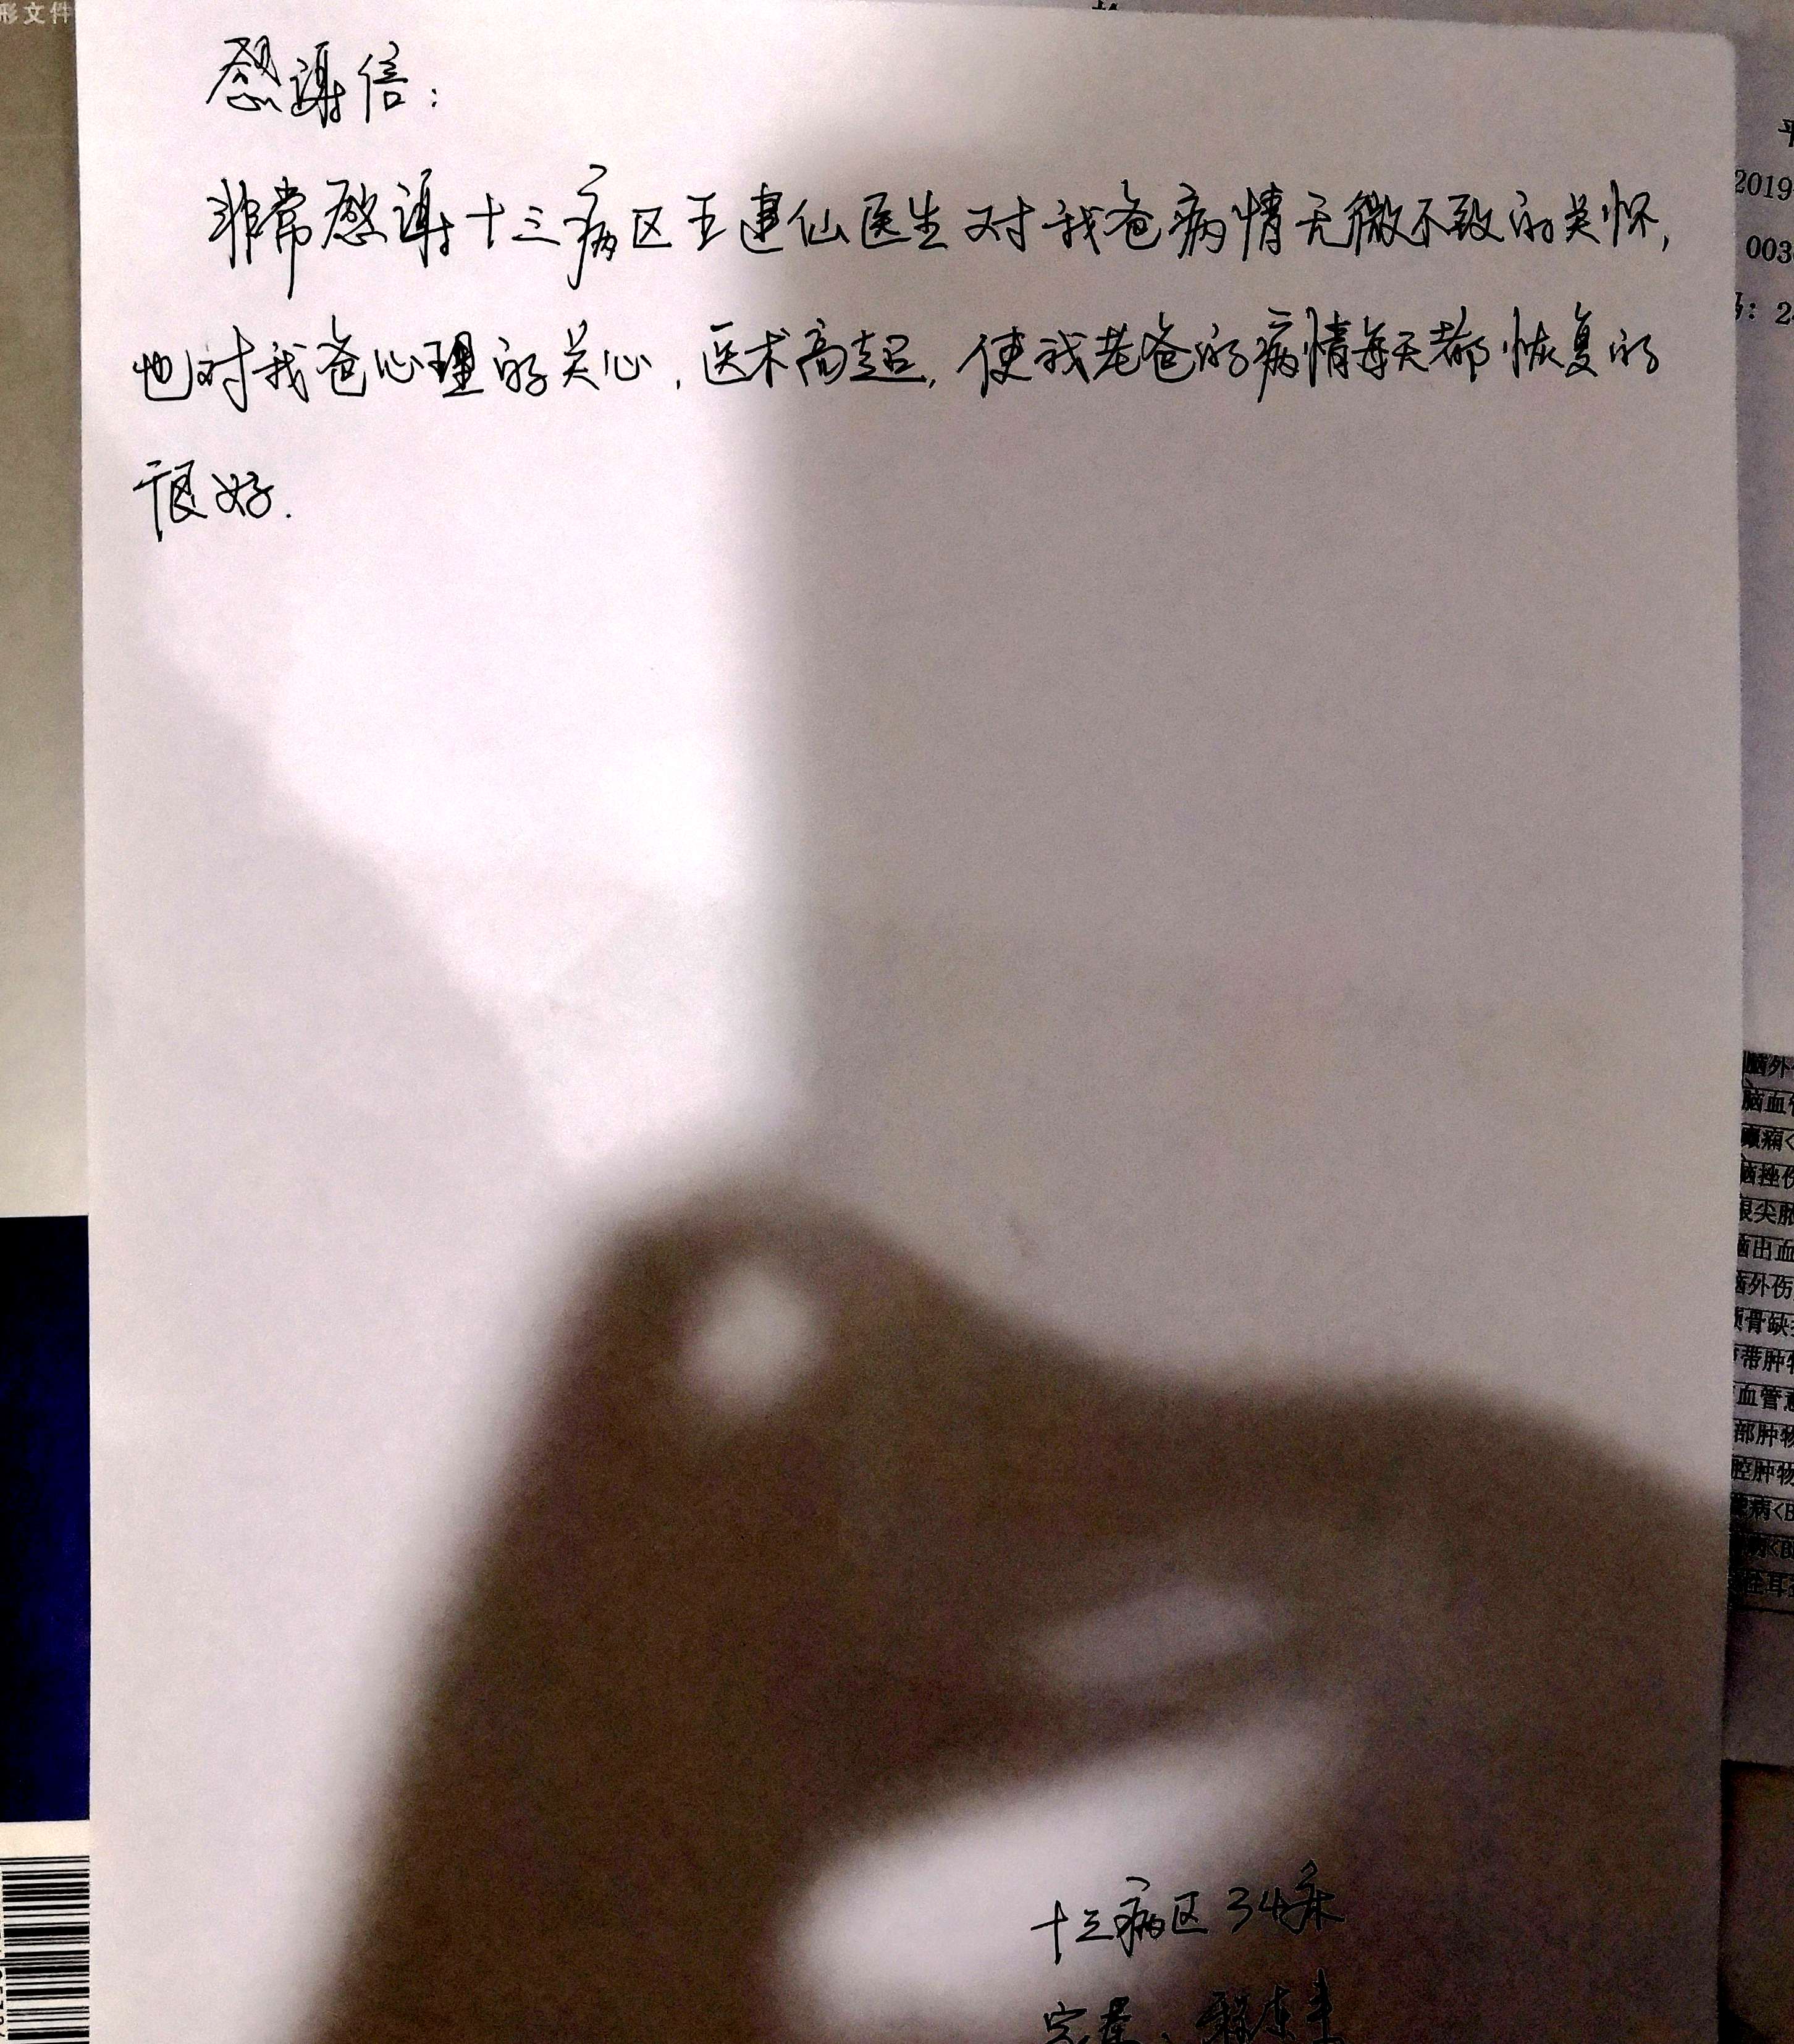 形文件
感谢信:
非常感谢十三病区王建仙医生对我爸病情无微不致的关怀,
他对我爸心理的关心,医术高超,使我老爸的病情每天都恢复的
很好.
十三病区34床
家属、
2019
003
: 2
脑外
脑血管
癫痫<
脑挫伤
根尖脓
脑出血
脑外伤
颅骨缺
带肿物
血管意
部肿物
腔肿物
病<B
病<B